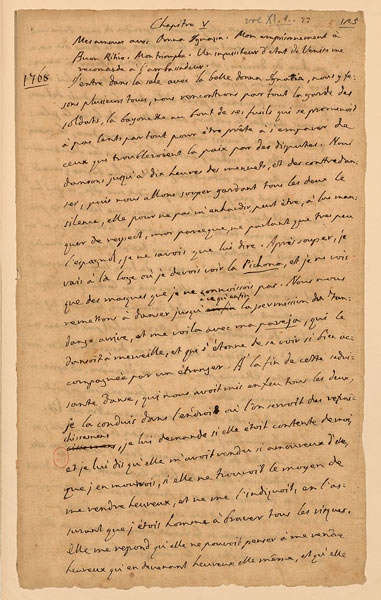 Chapitre V
125
Mes amours avec Donna Ignazia. Mon emprisonnement à
Buen Ritiro. Mon triomphe. Un inquisiteur d'état de Venise me
recomande à l'ambassadeur.
1768
J'entre dans la sale avec la belle donna Ignatia, nous y fe-
sons plusieurs tours, nous rencontrons par tout la garde des
soldats, la bayonette au bout de ses fusils qui se promenoit
à pas lents par tout pour être prête à s'emparer de
ceux qui troubleroient la paix par des disputes. Nous
dansons jusqu'à dix heures des menuets, et des contredan-
ses, puis nous allons souper gardant tous les deux le
silence, elle pour ne pas m'enhardir peut être, à lui man-
quer de respect, moi parceque ne parlant que tres peu
l'espagnol, je ne savois que lui dire. Après souper, je
vais à la loge où je devois voir la Pichona, et je ne vois
que des masques que je ne connoissois pas. Nous nous
remettons à danser jusqu'à ce qu'enfin la permission du fan-
dango arrive, et me voila avec ma pareja, qui le
dansoit à merveille, et que s'étonne de se voir si bien ac-
compagnée par un étranger. A la fin de cette sedui-
sante danse, qui nous avoit mis en feu tous les deux,
je la conduis dans l'endroit où l'on servoit des rafraî-
chissemens, je lui demande si elle étoit contente de moi
et je lui dis qu'elle m'avoit rendu si amoureux d'elle,
que j'en mourrois, si elle ne trouvoit le moyen de
me rendre heureux, et ne me l'indiquoit, en l'as-
surant que j'étois homme à braver tous les risques.
Elle me repond qu'elle ne pouvoit penser à me rendre
heureux qu'en devenant heureuse elle même, et qu'elle